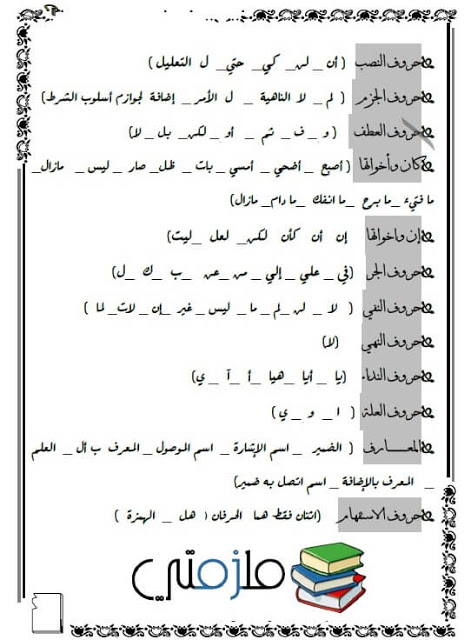 حروف النصب ( أن _ لن_ كي_ حتي_ ل التعليل )
حروف الجزم ( لم _ لا الناهية _ ل الأمر_ إضافة لجوازم أسلوب الشرط)
حروف العطف ( و _ ف_ ثم _ أو _ لكن_ بل _ لا)
كان وأخواتها ( أصبح _ أضحي _ أمسي _ بات _ ظل_ صار _ ليس _ مازال_
ما فتيء _ ما برح _ ما انفك _ ما دام_ مازال)
إن واخواتها إن أن كأن لكن_ لعل _ ليت)
حروف الجر (في _ علي _ إلي _ من _ عن _ ب _ ك _ ل)
حروف النفي ( لا _ لن _ لم _ ما _ ليس _ غير _ إن _ لات_ لما )
حروف النهي (لا)
حروف النداء (يا _ أيا _ هيا _ أ _ آ _ ي)
حروف العلة ( ا _ و _ ي)
المعـــارف ( الضمير _ اسم الإشارة _ اسم الموصول _ المعرف ب أل _ العلم
_ المعرف بالإضافة _ اسم اتصل به ضمير)
حروف الاستفهام (اثنان فقط هما الحرفان ( هل _ الهمزة )
ملزمتي